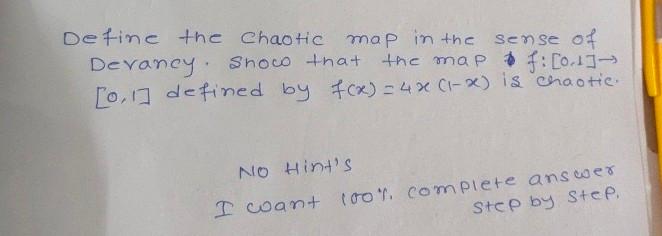 Define the Chaotic map in the sense of
Devancy. Show that the map f:[0,1]→
[0,1] defined by f(x) = 4x (1-x) is chaotic.
NO Hint's
I want 100% complete answer
step by step.